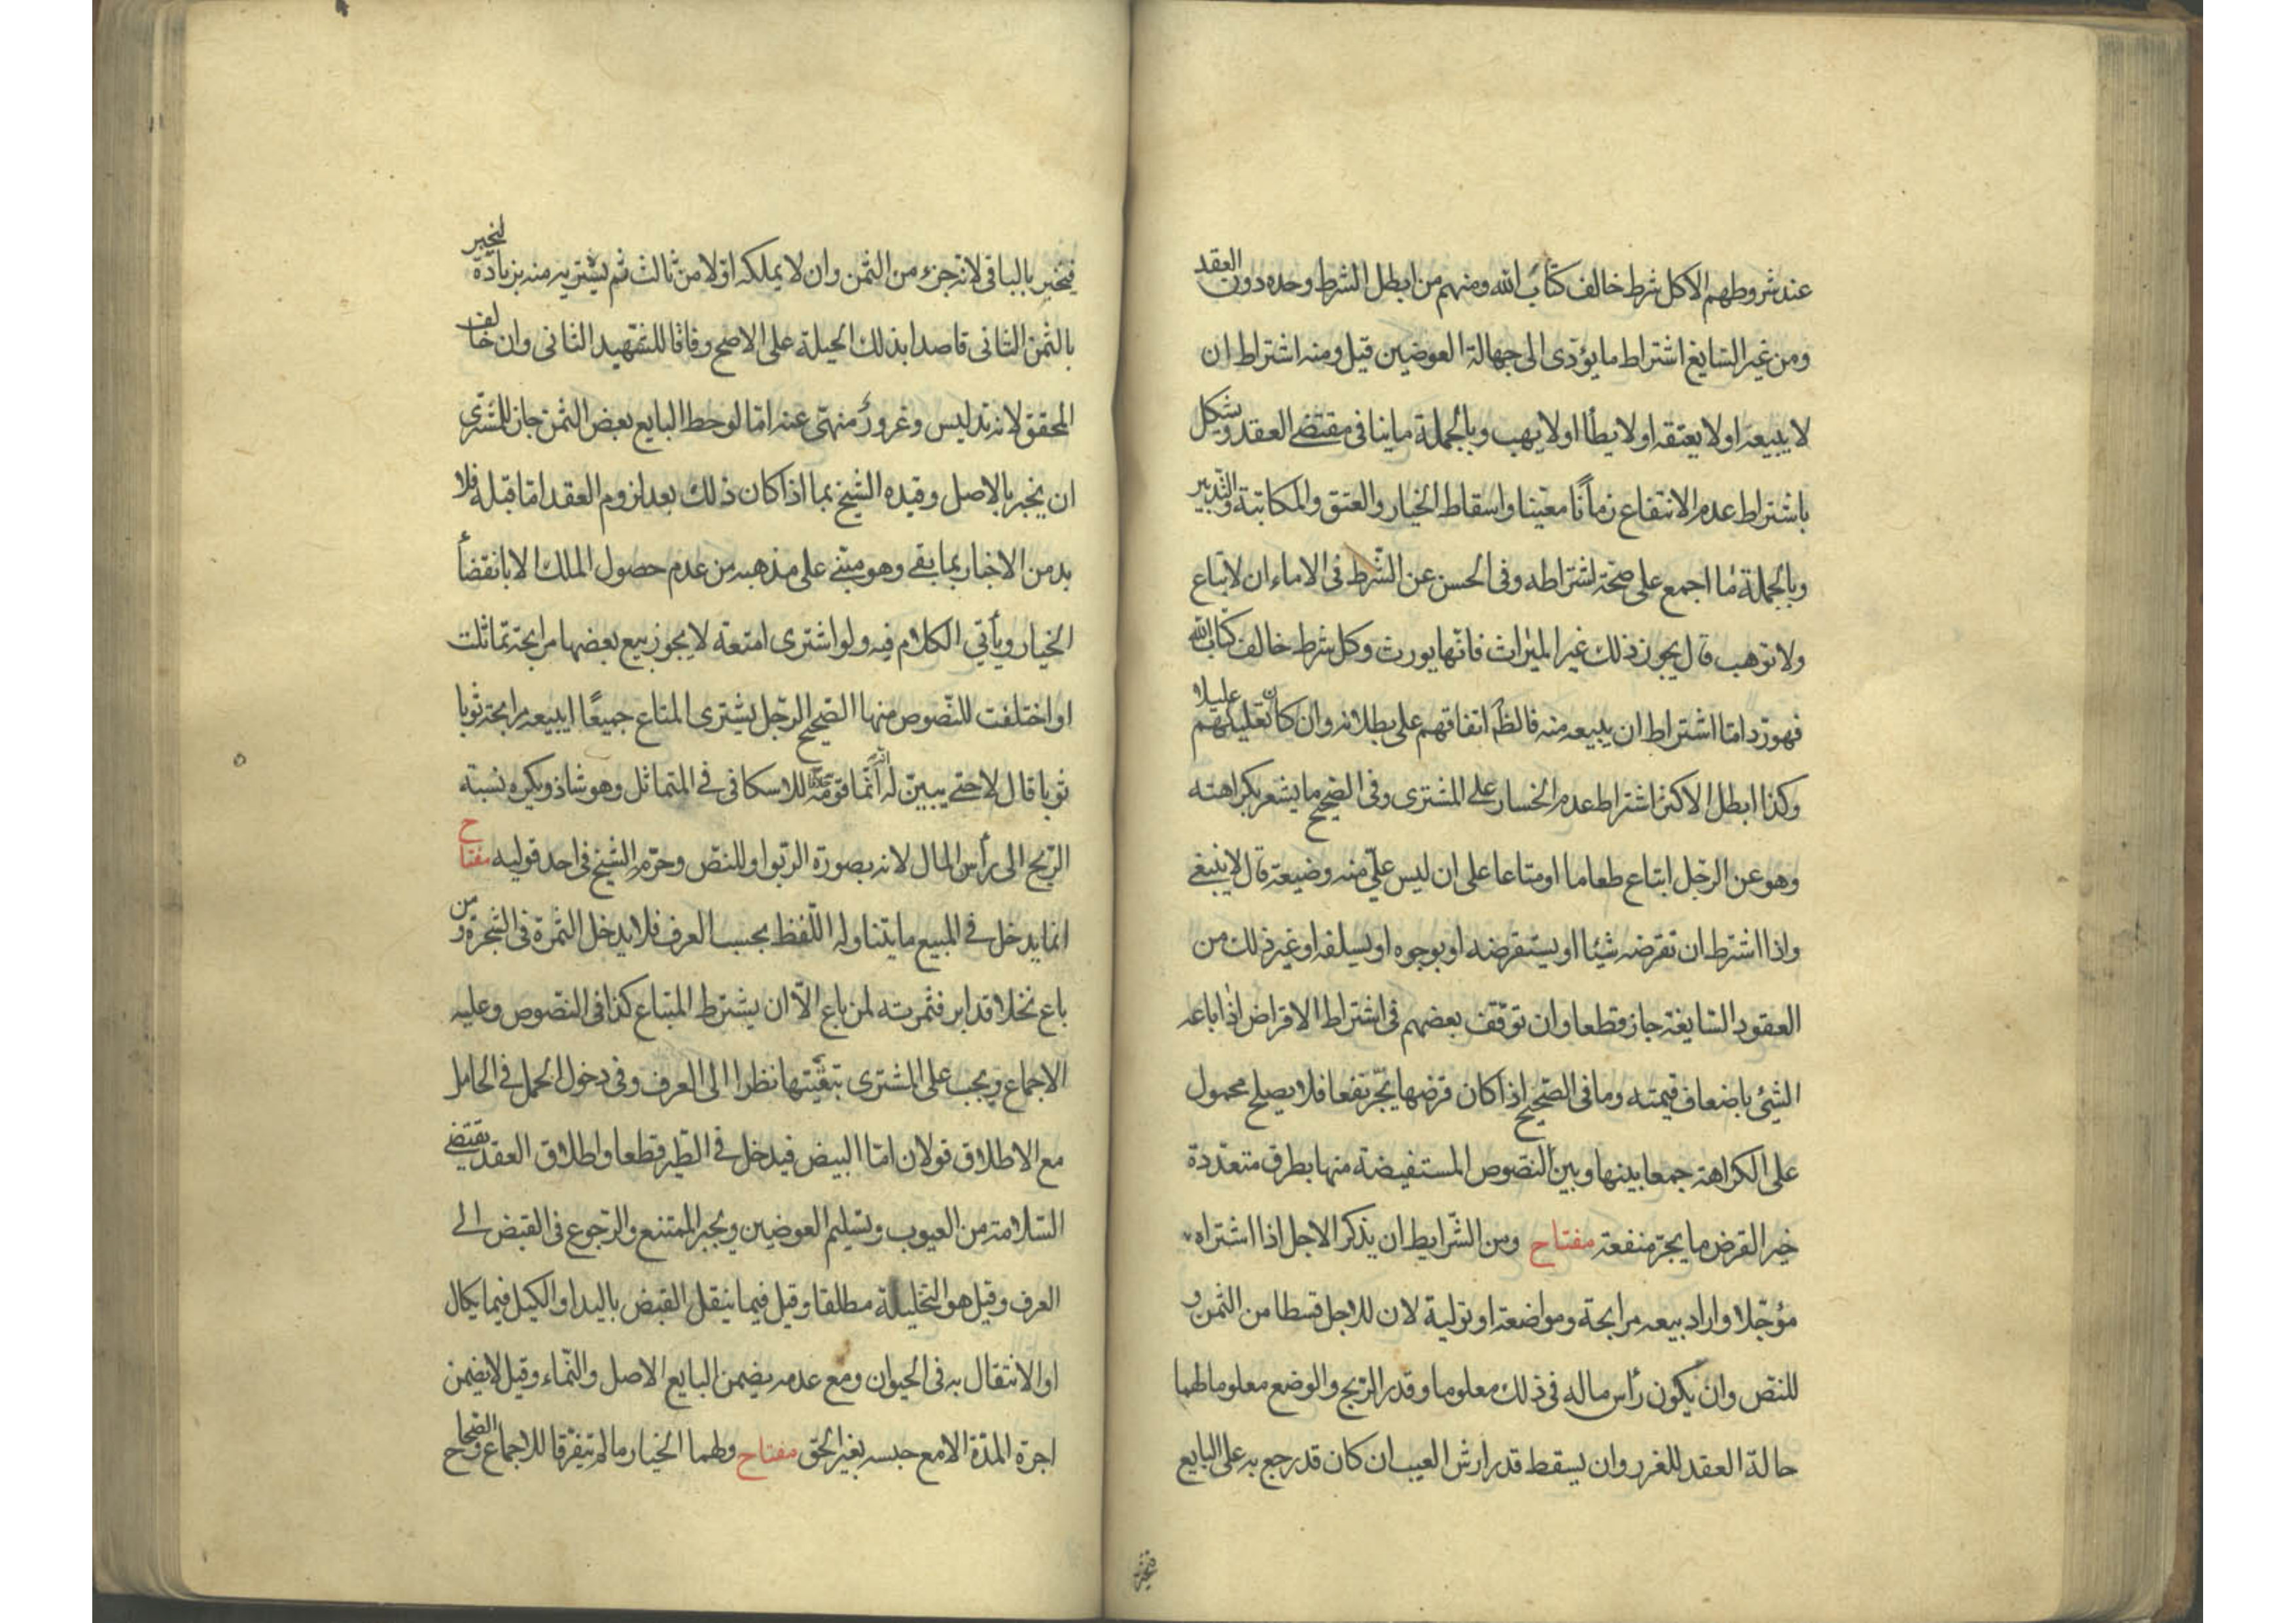 عند شروطهم الا كل شرط خالف كتاب الله ومنهم من ابطل الشرط وحده دون العقد
ومن غير السايغ اشتراط ما يؤدى الى جهالة العوضين قيل ومنه اشتراط ان
لا يبيعه او لا يعتقه او لا يطأ او لا يهب وبالجملة ما ينافى مقتضى العقد ويشكل
باشتراط عدم الانتفاع زمانا معينا واسقاط الخيار والعتق والمكاتبة والتدبير
وبالجملة ما اجمع على صحة اشتراطه وفى الحسن عن الشرط فى الاماء ان لا تباع
ولا توهب قال يجوز ذلك غير الميراث فانها يورث وكل شرط خالف كتاب الله
فهو رد اما اشتراط ان يبيعه منه فالظ اتفاقهم على بطلانه وان كان تعليلهم عليلا
وكذا ابطل الاكثر اشتراط عدم الخسار على المشترى وفى الصحيح ما يشعر بكراهته
وهو عن الرجل ابتاع طعاما او متاعا على ان ليس على منه وضيعة قال لا ينبغى
واذا اشترط ان تقرضه شيئا او يستقرضه او يوجره او يسلفه او غير ذلك من
العقود السايغة جاز قطعا وان توقف بعضهم فى اشتراط الاقراض اذا باعه
الشئ باضعاف قيمته وما فى الصحيح اذا كان قرضها يجر نفعا فلا يصلح محمول
على الكراهة جمعا بينها وبين النصوص المستفيضة منها بطرق متعددة
خير القرض ما يجر منفعة مفتاح ومن الشرايط ان يذكر الاجل اذا اشتراه
مؤجلا واراد بيعه مرابحة ومواضعة او تولية لان للاجل قسطا من الثمن و
للنص وان يكون رأس ماله فى ذلك معلوما وقدر الربح والوضع معلوما لهما
حالة العقد للغرر وان يسقط قدر ارش العيب ان كان قد رجع به على البايع
فيخبر
فيخبر بالباقى لانه جزء من الثمن وان لا يملكه اولا من ثالث ثم يشتريه منه بزيادة ليخبر
بالثمن الثانى قاصدا بذلك الحيلة على الاصح وفاقا للشهيد الثانى وان خالف
المحقق لانه تدليس وغرور منهى عنه اما لو حط البايع بعض الثمن جاز للمشترى
ان يخبر بالاصل وقيده الشيخ بما اذا كان ذلك بعد لزوم العقد اما قبله فلا
بد من الاخبار بما بقى وهو مبنى على مذهبه من عدم حصول الملك الا بانقضأ
الخيار ويأتى الكلام فيه ولو اشترى امتعة لا يجوز بيع بعضها مرابحة تماثلت
او اختلفت للنصوص منها الصحيح الرجل يشترى المتاع جميعا ايبيعه مرابحة ثوبا
ثوبا قال لا حتى يبين له انه انما قومه للاسكافى فى المتماثل وهو شاذ ويكره نسبة
الربح الى رأس المال لانه بصورة الربوا وللنص وحرمه الشيخ فى احد قوليه مفتاح
انما يدخل فى المبيع ما يتناوله اللفظ بحسب العرف فلا يدخل الثمرة فى الشجرة ومن
باع نخلا قد ابر فثمرته لمن باع الا ان يشترط المبتاع كذا فى النصوص وعليه
الاجماع ويجب على المشترى تبقيتها نظرا الى العرف وفى دخول الحمل فى الحامل
مع الاطلاق قولان اما البيض فيدخل فى الطير قطعا واطلاق العقد يقتضى
السلامة من العيوب وتسليم العوضين ويجبر الممتنع والرجوع فى القبض الى
العرف وقيل هو التخلية مطلقا وقيل فيما ينقل القبض باليد او الكيل فيما يكال
او الانتقال به فى الحيوان ومع عدمه يضمن البايع الاصل والنماء وقيل لا يضمن
اجرة المدة الا مع حبسه بغير الحق مفتاح ولهما الخيار ما لم يتفرقا للاجماع والصحاح